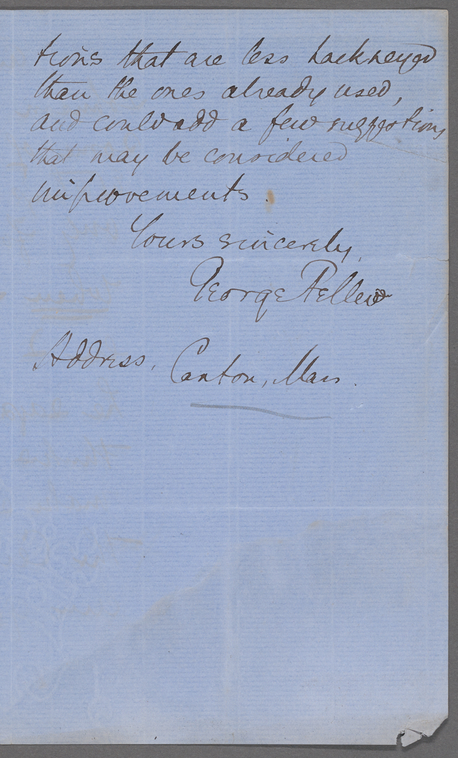 tions that are less hackneyed
than the ones already used,
and could add a few suggestions
that may be considered
improvements.
Yours sincerely,
George Pellew
Address. Canton, Mass.